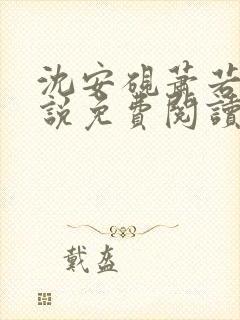 沈安硯蕭若
說免費閱讀
戴盔